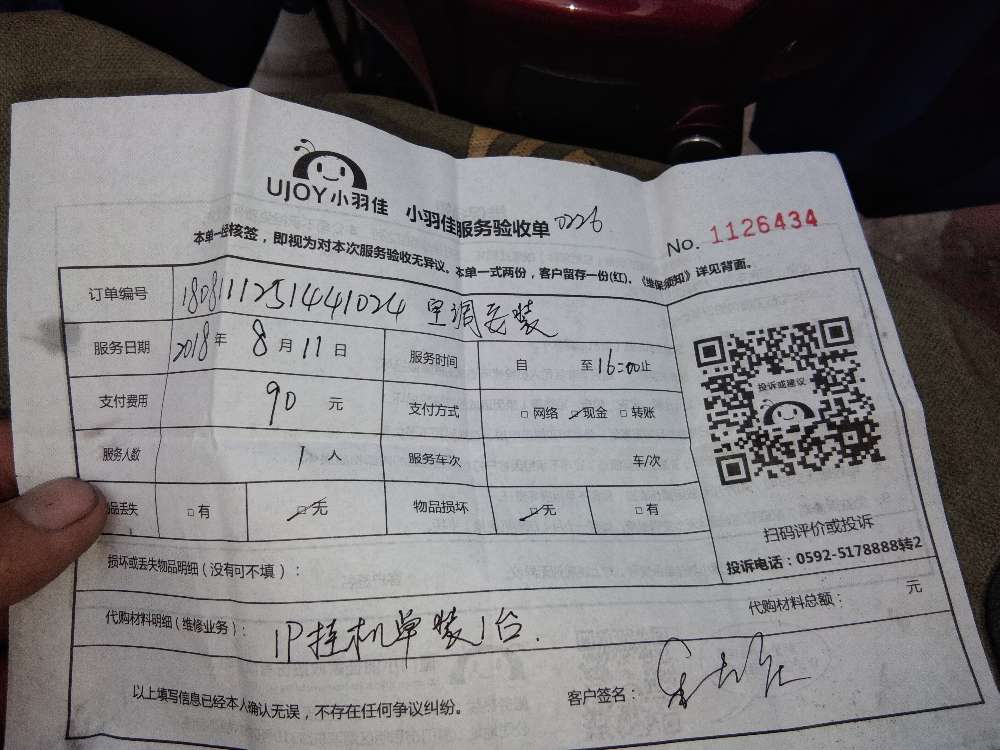 UJOY小羽佳 小羽佳服务验收单 0226
No. 1126434
本单一经核签，即视为对本次服务验收无异议。本单一式两份，客户留存一份(红)。《维保须知》详见背面。
订单编号 1808111251441024 空调安装
服务日期 2018年 8月11日 服务时间 自 至16:00止
支付费用 90 元 支付方式 □网络 ☑现金 □转账
投诉或建议
服务人数 1人 服务车次 车/次
品丢失 □有 ☑无 物品损坏 ☑无 □有
扫码评价或投诉
投诉电话：0592-5178888转2
损坏或丢失物品明细（没有可不填）：
代购材料明细（维修业务）： 1P挂机单装1台. 代购材料总额： 元
以上填写信息已经本人确认无误，不存在任何争议纠纷。 客户签名：